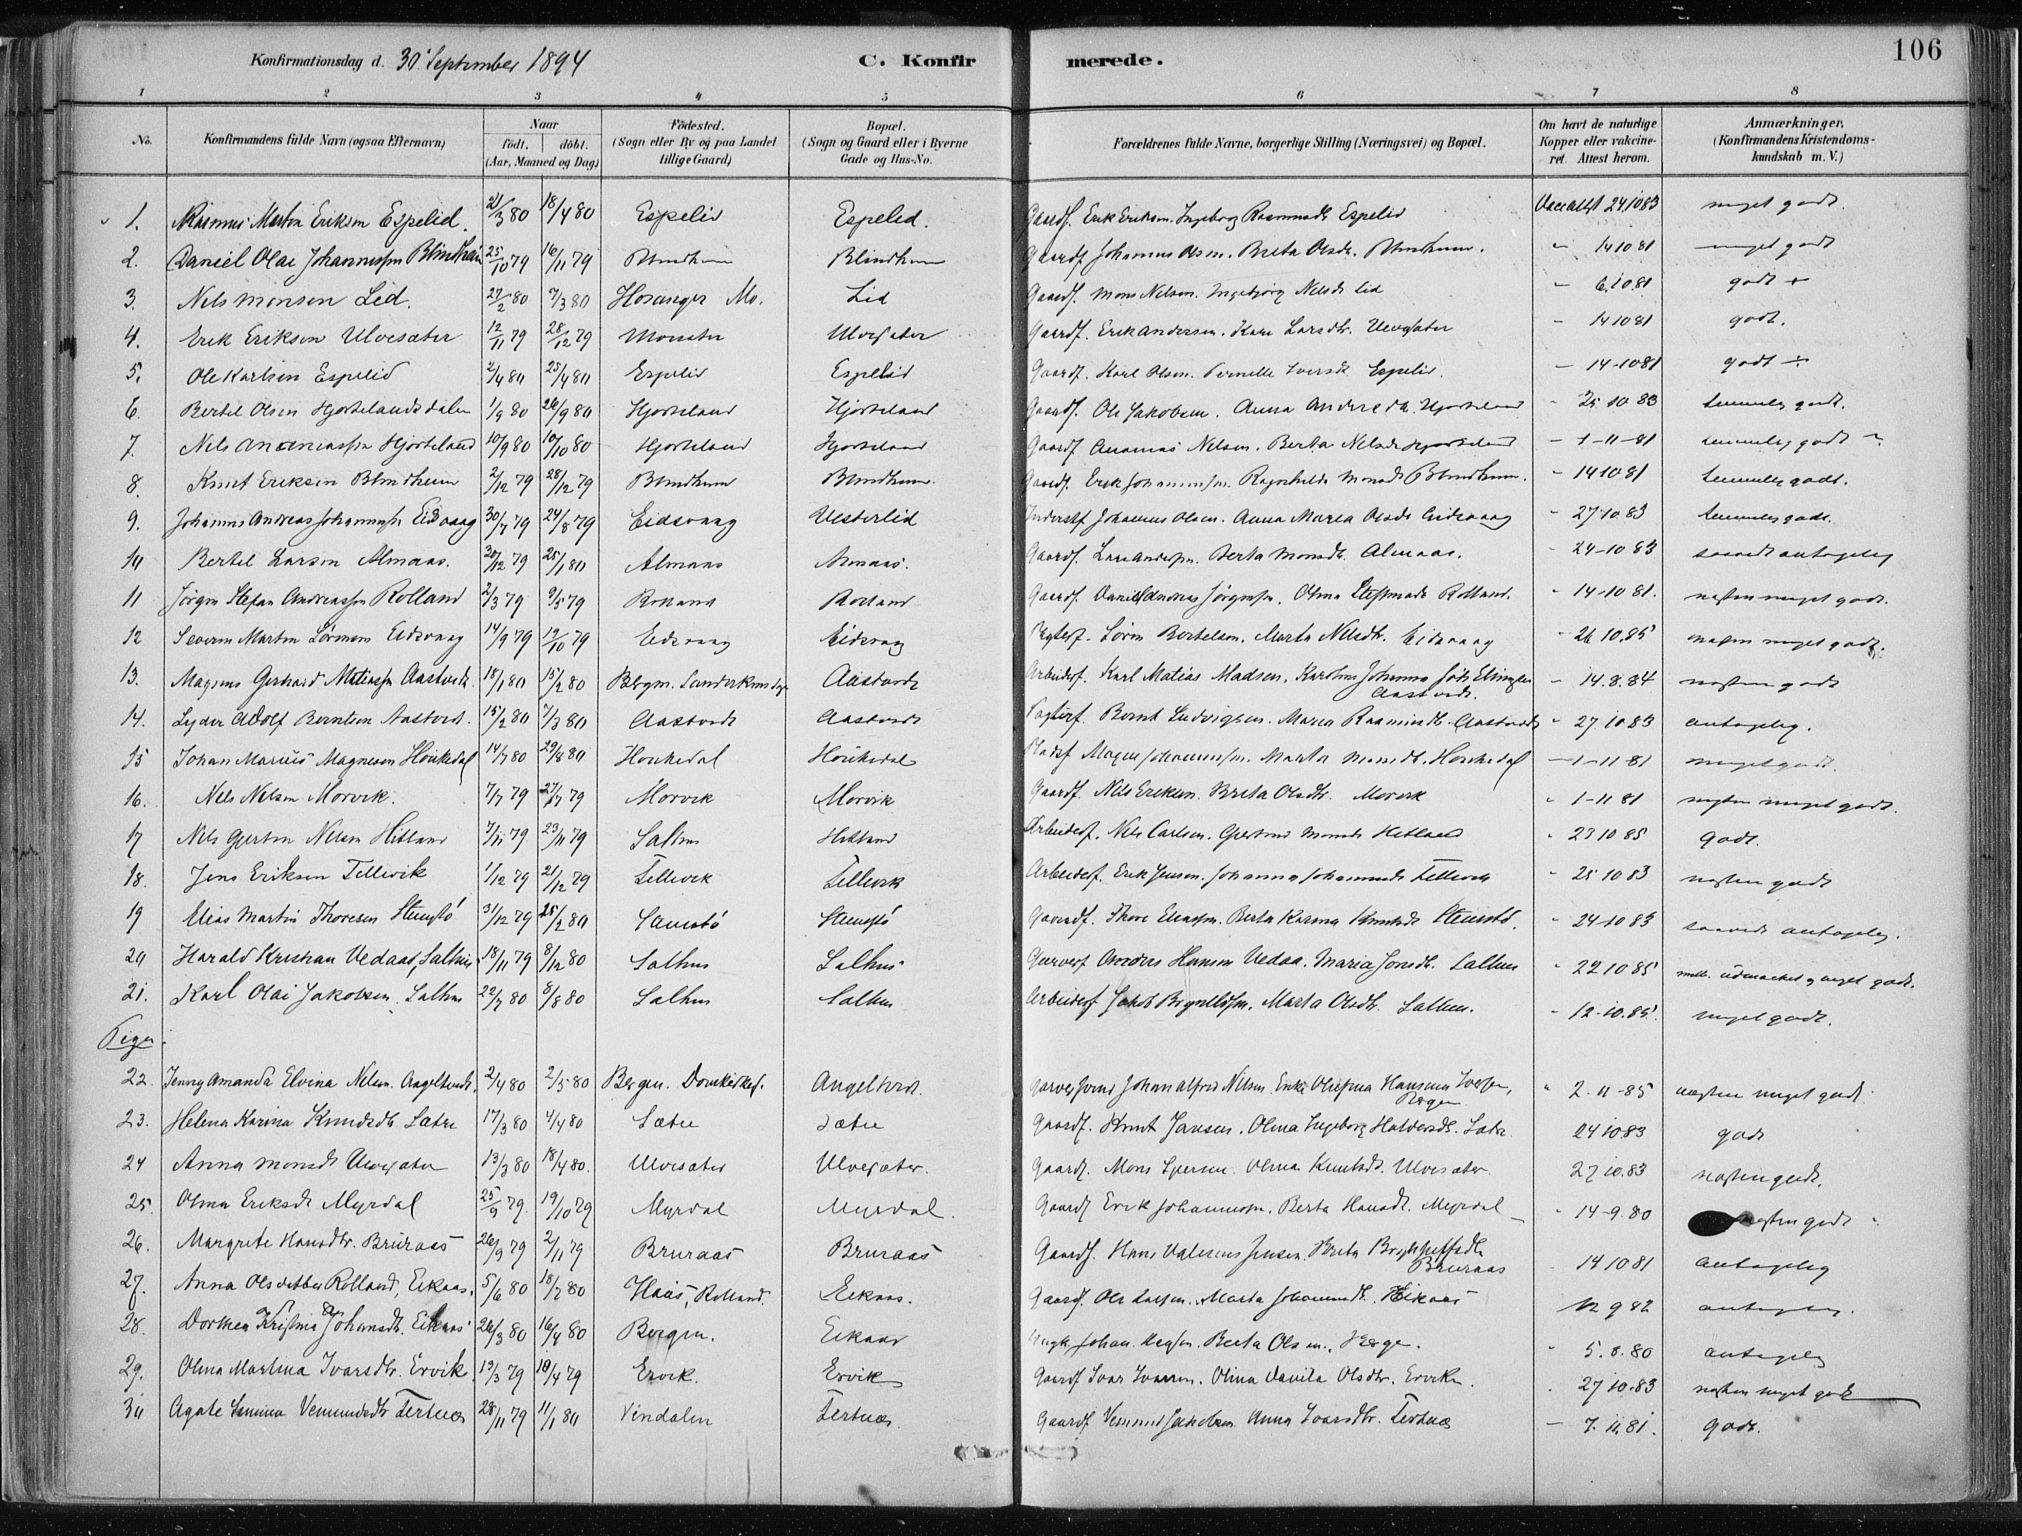 Konfirmationsdag d. 30 September 1894 C. Konfir merede. 106
1 2 3 4 5 6 7 8
No. Konfirmandens fulde Navn (ogsaa Efternavn) Naar født. døbt. (Aar, Maaned og Dag) Födested. (Sogn eller By og paa Landet tillige Gaard) Bopæl. (Sogn og Gaard eller i Byerne Gade og Hus-No. Forældrenes fulde Navne, borgerlige Stilling (Næringsvei) og Bopæl. Om havt de naturlige Kopper eller vakcineret. Attest herom. Anmærkninger, (Konfirmandens Kristendomskundskab m. V.)
1. Rasmus Martin Eriksen Espelid. 21/3 80 18/4 80 Espelid Espelid. Gaardf. Erik Eriksen. Ingeborg Rasmusdt. Espelid 24 10 83 meget godt.
2. Daniel Olai Johannessen Blindheim 25/10 79 16/11 79 Blindheim Blindheim Gaardf. Johannes Olsen. Brita Olsdt. Blindheim. " 14 10 81 meget godt
3. Nels Monsen Lid. 27/2 80 7/3 80 Hosanger Mo. Lid Gaardf. Mons Nelsen. Ingebjørg Nelsdt Lid – 6.10 81 godt +
4. Erik Eriksen Ulvesæter 12/11 79 28/12 79 Ulvesæter Gaardf. Erik Andersen. Kari Larsdtr. Ulvesæter – 14 10 81 godt.
5. Ole Karlsen Espelid 2/4 80 25/4 80 Espelid Espelid Gaardf. Karl Olsen. Pernille Iversdt. Espelid. – 14-10 81 godt ÷
6. Bertel Olsen Hjortelandsdalen 1/9 80 26/9 80 Hjorteland Hjorteland Gaardf. Ole Jakobsen. Anna Andersdt. Hjorteland - 25 10 83 temmelig godt.
7. Nels Ananiassen Hjorteland 10/9 80 10/10 80 Hjorteland Hjorteland Gaardf Ananias Nelsen. Berta Nelsdt Hjorteland – 1-11-81 temmelig godt
8. Knut Eriksen Blindheim 2/12 79 28/12 79 Blindheim Blindheim. Gaardf. Erik Johannessen. Ragnhilde Monsdt Blindheim. - 14 10 81 temmelig godt.
9. Johannes Andreas Johannessen Eidsvaag 30/7 79 24/8 79 Eidsvaag Vesterlid Inderstf Johannes Olsen. Anna Maria Olsdt Eidsvaag - 27 10.83 temmelig godt.
10 Bertel Larsen Almaas. 30/12 79 25/1 80 Almaas Almaas. Gaardf. Lars Andersen. Berta Monsdt. Almaas. - 24-10 83 saavidt antagelig
11 Jørgen Stefan Andreassen Rolland 2/3 79 9/5 79 Rolland Rolland Gaardf. Daniel Andreas Jørgensen. Olina Steffensdt Rolland. - 14-10 81. næsten meget godt.
12 Severin Martin Sørensen Eidsvaag 14/9 79 19/10 79 Eidsvaag Eidsvaag Søren Bertelsen. Marta Nilsdtr. Eidsvaag - 26 10.85 næsten meget godt.
13. Magnus Gerhard Matiassen Aastvedt. 18/1 80 15/2 80 Bergen. Aastvedt Arbeidsf. Karl Matias Madsen, Johanna Aastvedt. – 14.8.84 næsten godt
14. Lyder Adolf Berntsen Aastvedt. 15/2 80 7/3 80 Aastvedt Aastvedt Bernt Ludvigsen. Maria Rasmusdtr. Aastvedt " 27 10 83 antagelig.
15 Johan Marius Magnesen Haukedal 14/7 80 29/8 80 Haukedal Haukedal Pladsf Magne Johannessen. Marta Monsdt. Haukedal – 1-11 81 meget godt.
16. Nels Nelsen Morvik. 7/7 79 27/7 79 Morvik Morvik Gaardf. Nils Eriksen. Brita Olsdtr. Morvik " 1-11 81 næsten meget godt.
17 Nels Gjertin Nelsen Hitland 7/11 79 23/11 79 Salhus Hitland Arbeidsf. Nels Carlsen. Gjertrud Monsdt Hetland " 23 10 85 Godt.
18. Jens Eriksen Tellevik 1/12 79 21/12 79 Tellevik Tellevik Arbeidsf. Erik Jensen. Johanna Johannesdt Tellevik " 25 10 83 næsten godt
19 Elias Martin Thoresen Steinstø 31/12 79 25/2 80 Steinstø Steinstø Gaardf. Thore Eliassen. Berta Karina Knutsdt Steinstø. " 24-10 83 saavidt antagelig.
20 Harald Kristian Vedaas, Salhus 18/11 79 8/12 80 Salhus Salhus Hansen Vedaa. Maria Jonsdt. Salhus - 22 10 85 mell. udmærket og meget godt.
21. Karl Olai Jakobsen. Salhus 22/7 80 8/8 80 Salhus Salhus Arbeidsf Jakob Brynildsen. Marta Olsdtr. Salhus. - 12-10.85. meget godt.
Piger.
22. Jenny Amanda Elvina Nelsen. Angeltvedt. 2/4 80 2/5 80 Bergen. Domkirken. Angeltvedt. Johan Alfred Nilsen. Hansine Iversen, Bergen " 2-11-85 næsten meget godt.
23. Helena Karina Knudsdtr. Sætre 17/3 80 4/4 80 Sætre Sætre Gaardf. Knut Jansen. Olina Ingeborg Halversdt. Sætre 24 10.83 godt
24 Anna Monsdt Ulvesæter 13/3 80 18/4 80. Ulvesæter Ulvesæter. Gaardf. Mons Olina Knutsdt. Ulvesæter 27 10.83 næsten godt.
25. Olina Eriksdt Myrdal 25/9 79 19/10 79 Myrdal Myrdal. Gaardf Erik Johannessen. Berta Hansdt. Myrdal - 14-9.80 næsten godt
26. Margrete Hansdtr. Bruraas 26/9 79 2/11 79 Bruraas Bruraas Gaardf. Hans Jensen. Brita Bruraas 14 10 81 antagelig
27. Anna Olsdatter Rolland, Eikaas. 5/6 80 18/7 80 Haas, Rolland. Eikaas. Gaardf. Ole Larsen. Marta Johannesdt. Eikaas 12 9 82 antagelig.
28. Dorthea Kristine Johansdt. Eikaas 26/3 80 16/4 80 Bergen. Eikaas Johan Berta Olsen. " 5.8.80 antagelig
29. Olina Martina Ivarsdtr. Ervik 13/3 79 10/4 79 Ervik. Ervik Gaardf Ivar Ivarsen. Olina Davida Olsdtr. Ervik. . 27 10.83 næsten meget godt
30 Agate Vemundsdtr Tertnæs 28/11 79 11/1 80 Vindalen Tertnæs Gaardf. Vemund Jakobsen Anna Ivarsdtr. Tertnæs – 7.11.81. godt.